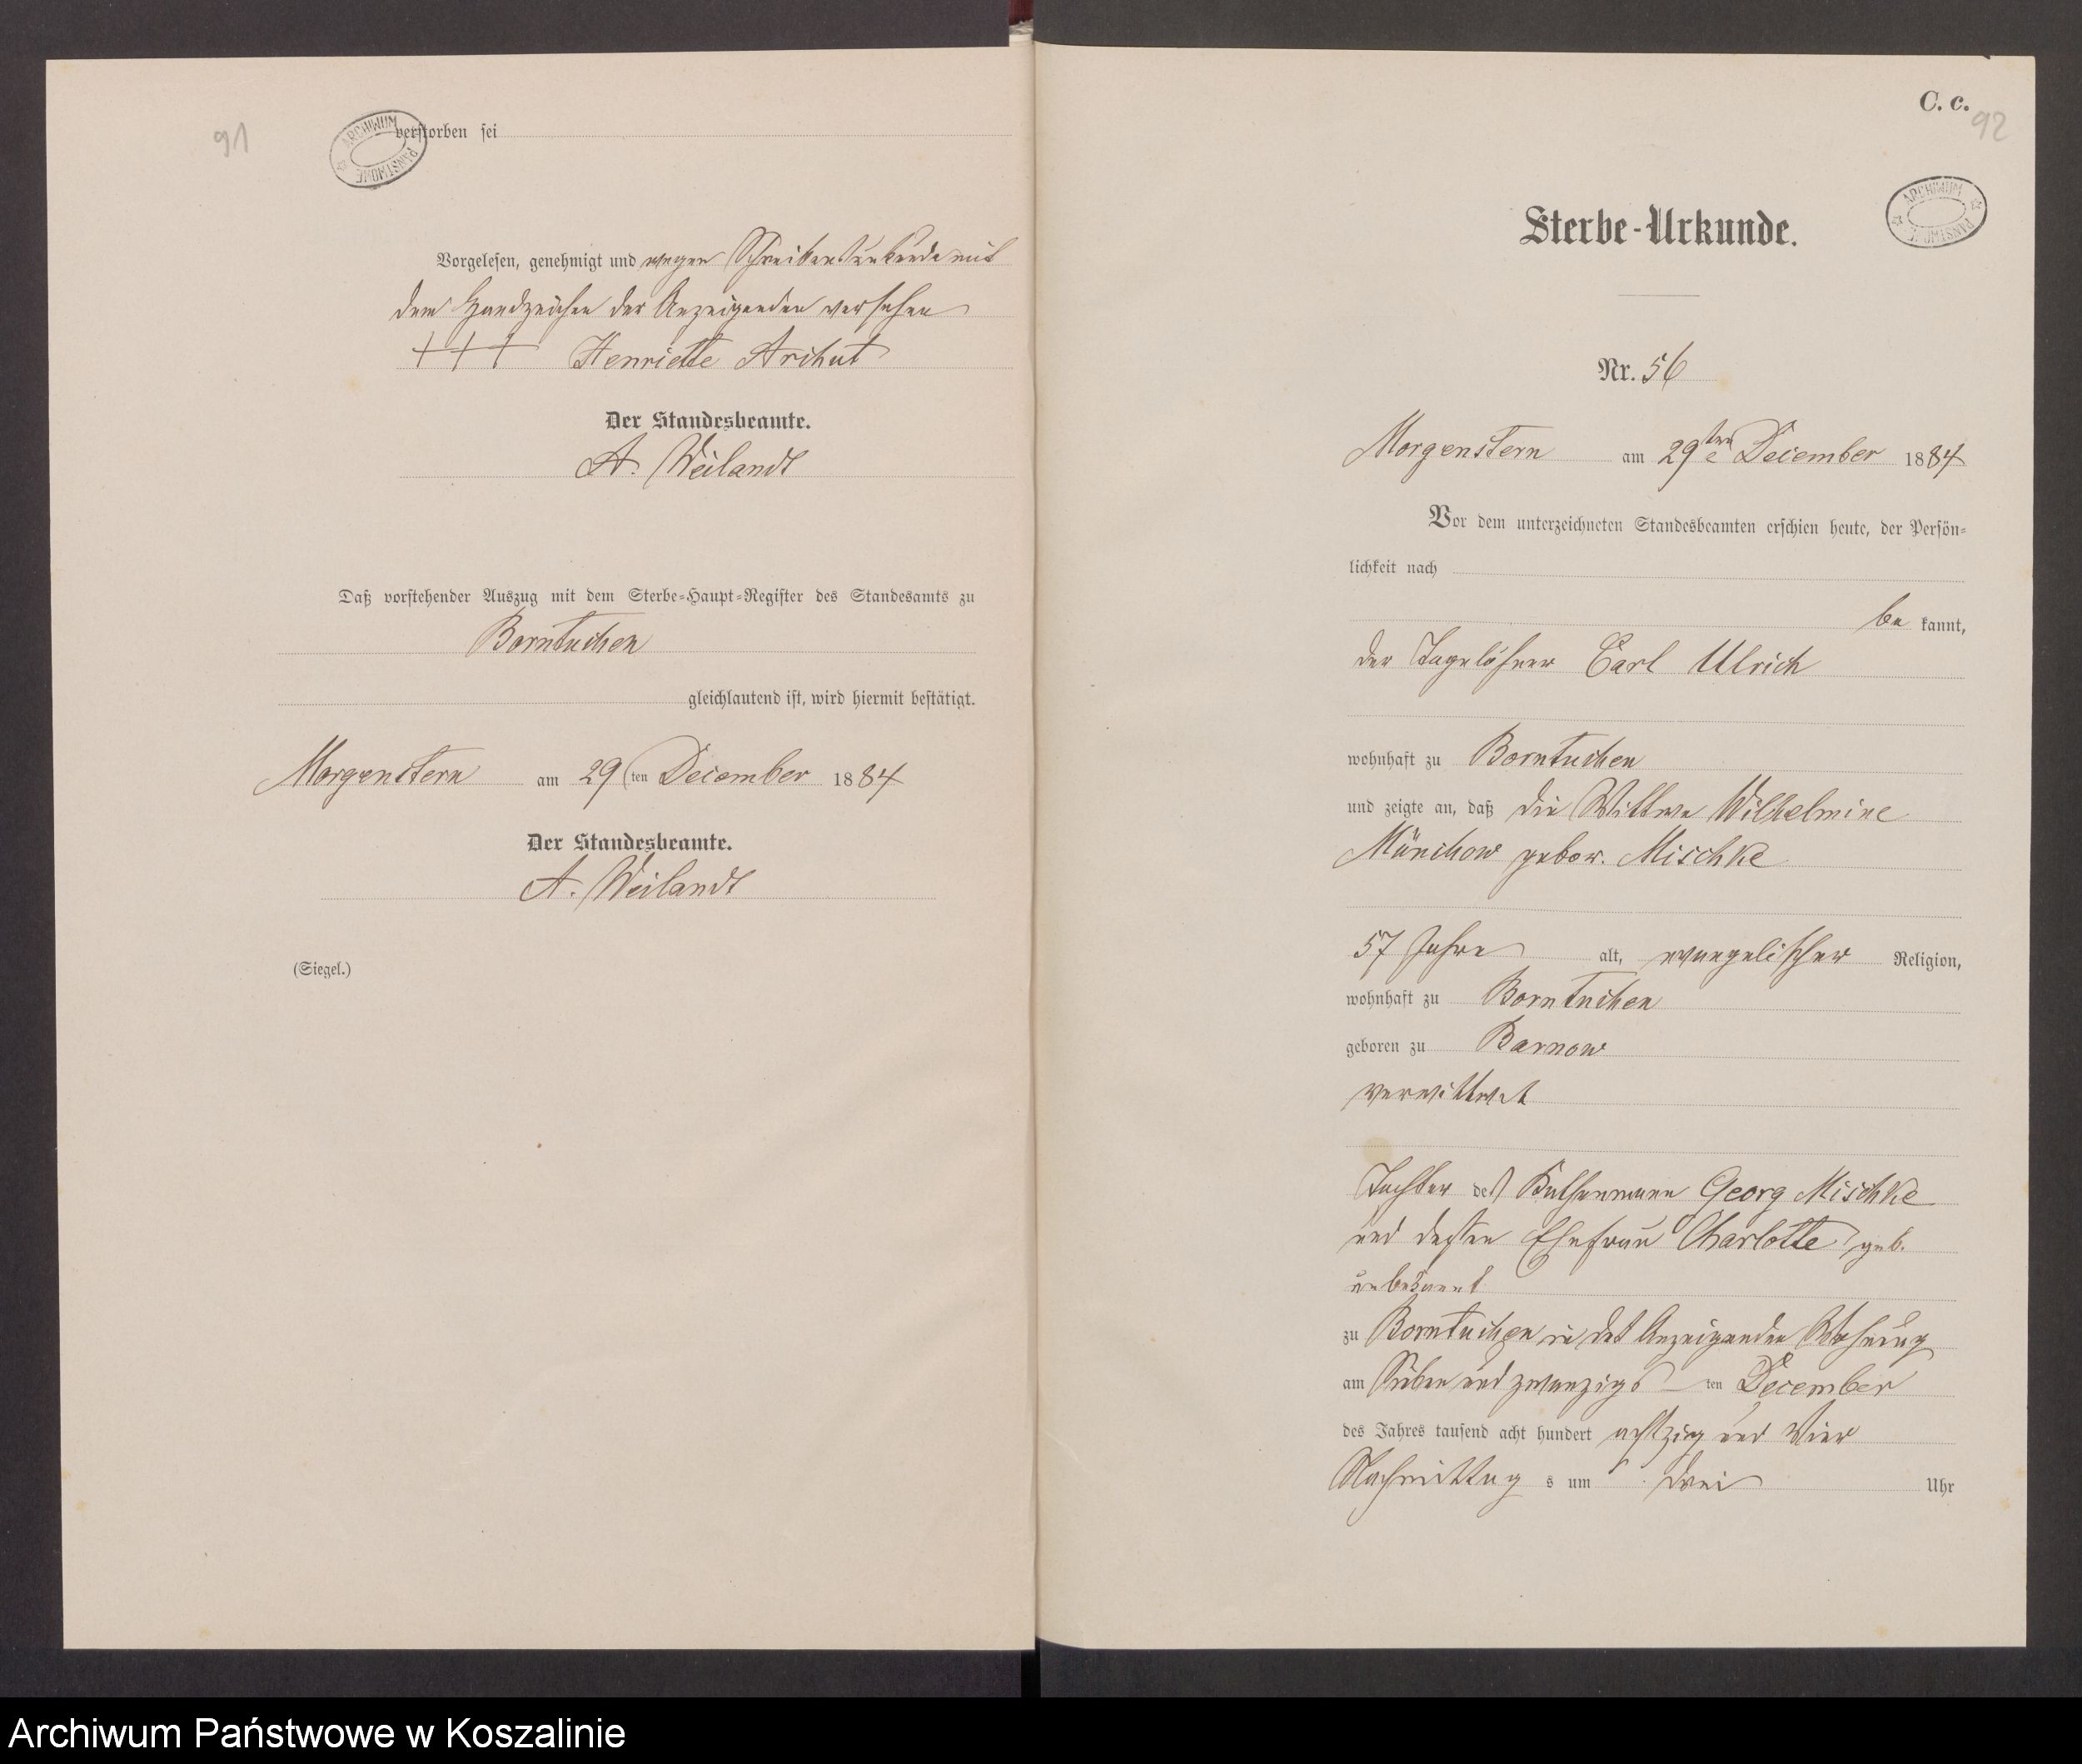 91
ARCHIWUM PAŃSTWOWE
verstorben sei
Vorgelesen, genehmigt und wegen Schreibensunkunde mit
dem Handzeichen der Anzeigenden versehen
+++ Henriette Arihut
Der Standesbeamte.
A. Weilandt
Daß vorstehender Auszug mit dem Sterbe-Haupt-Register des Standesamts zu
Borntuchen
gleichlautend ist, wird hiermit bestätigt.
Morgenstern am 29 ten December 1884
Der Standesbeamte.
A. Weilandt
(Siegel.)
C. c.
92
ARCHIWUM PAŃSTWOWE
Sterbe-Urkunde.
Nr. 56
Morgenstern am 29ten December 1884
Vor dem unterzeichneten Standesbeamten erschien heute, der Persön-
lichkeit nach
be kannt,
der Tagelöhner Carl Ulrich
wohnhaft zu Borntuchen
und zeigte an, daß die Wittwe Wilhelmine
Münchow gebor. Mischke
57 Jahre alt, evangelischer Religion,
wohnhaft zu Borntuchen
geboren zu Barnow
verwittwet
Tochter des Kathenmann Georg Mischke
und dessen Ehefrau Charlotte geb.
unbekannt
zu Borntuchen in des Anzeigenden Wohnung
am Sieben und zwanzigs ten December
des Jahres tausend acht hundert achtzig und Vier
Nachmittag s um drei Uhr
Archiwum Państwowe w Koszalinie